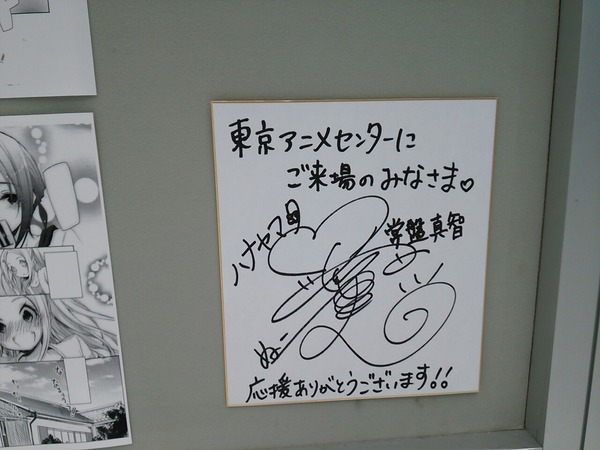 東京アニメセンターに
ご来場のみなさま♡
常盤真智
応援ありがとうございます!!